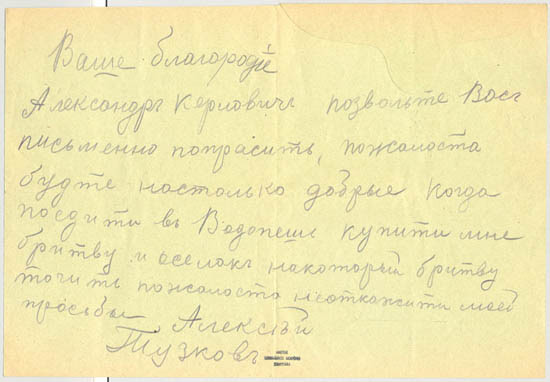 Ваше благородіе
Александръ Керловичъ позвольте Васъ
письменно попрасить, пожалоста
будте настолько добрые когда
поедити въ Водопешь купити мне
бритву и аселокъ накоторый бритву
точить пожалоста неоткажити моей
просьбы Алексѣй
Тузковъ